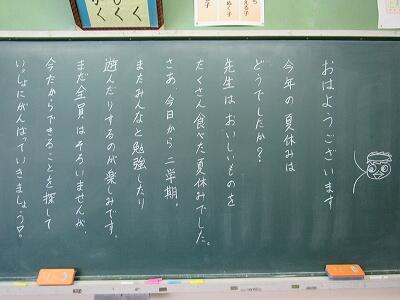 おはようございます
今年の夏休みは
どうでしたか？
先生はおいしいものを
たくさん食べた夏休みでした。
さあ、今日から二学期。
またみんなと勉強したり
遊んだりするのが楽しみです。
まだ全員はそろいませんが、
今だからできることを探して
いっしょにがんばっていきましょう。